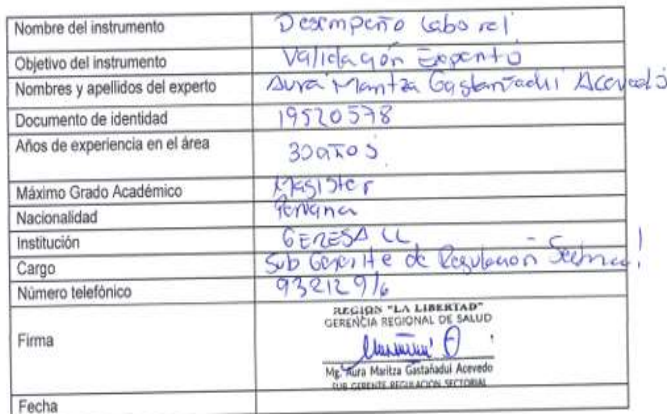 Nombre del instrumento Desempeño laboral
Objetivo del instrumento Validación Experto
Nombres y apellidos del experto Aura Maritza Gastañadui Acevedo
Documento de identidad 19520578
Años de experiencia en el área 30 años
Máximo Grado Académico Magister
Nacionalidad Peruana
Institución GERESA LL
Cargo Sub Gerente de Regulación Sectorial
Número telefónico 93212916
REGIÓN "LA LIBERTAD"
GERENCIA REGIONAL DE SALUD
Firma
Mg. Aura Maritza Gastañadui Acevedo
SUB GERENTE REGULACION SECTORIAL
Fecha